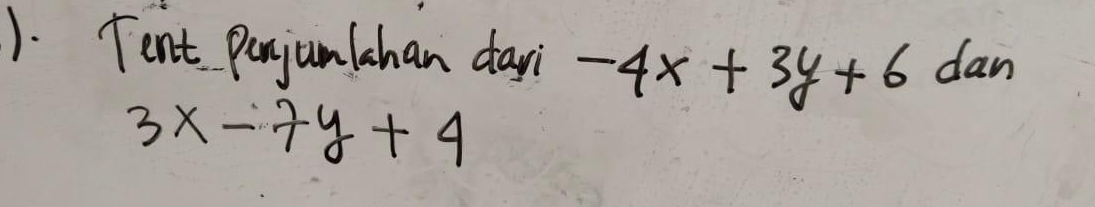 ). Tent Penjumlahan dari -4x + 3y + 6 dan
3x - 7y + 4